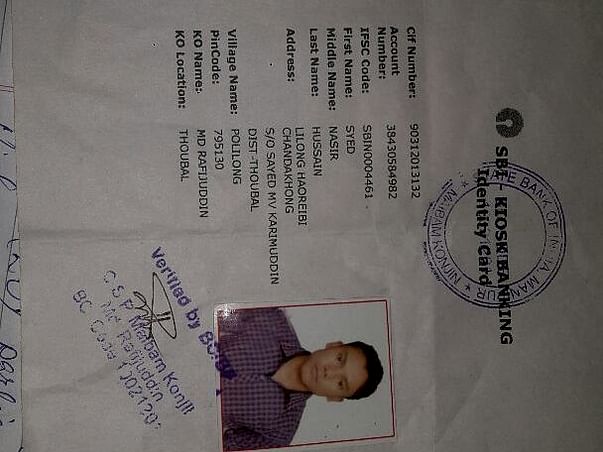 SBI - KIOSK BANKING
Identity Card
Cif Number: 90312013132
Account Number: 38430584982
IFSC Code: SBIN0004461
First Name: SYED
Middle Name: NASIR
Last Name: HUSSAIN
Address: LILONG HAOREIBI
CHANDAKHONG
S/O SAYED MV KARIMUDDIN
DIST-THOUBAL
Village Name: POLILONG
PinCode: 795130
KO Name: MD RAFIJUDDIN
KO Location: THOUBAL
Verified by
C S P Maibam Konjil
Md Rafijuddin
BC Code